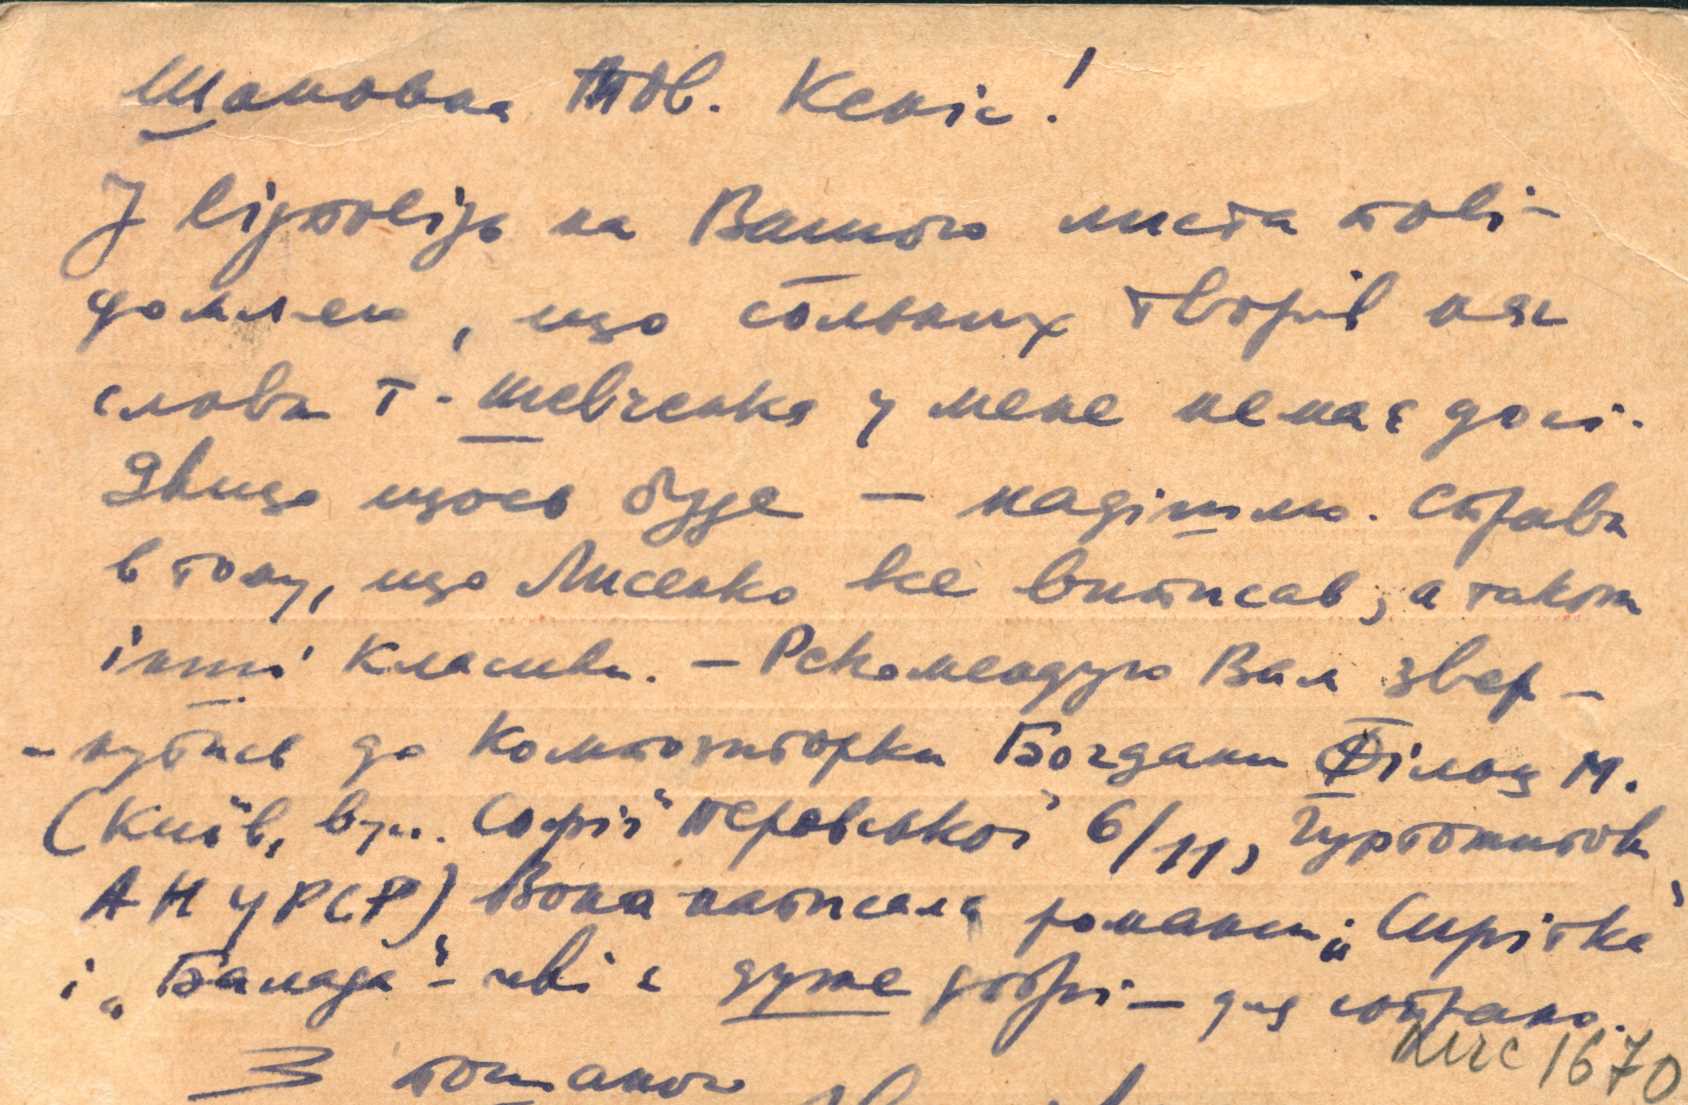 Шановна Тов. Кеніс!
У відповідь на Вашого листа пові-
домляю, що сольних творів на
слова Т. Шевченка у мене немає досі.
Якщо щось буде — надішлю. Справа
в тому, що Лисенко все виписав, а також
інші класики. — Рекомендую Вам звер-
-нутись до композиторки Богдани Фільц М.
(Київ, вул. Софії Перовської 6/11, Гуртожиток
АН УРСР) Вона написала романси: „Сирітка"
і „Балада" - які є дуже добрі — для сопрано.
З пошаною
КПС 1670